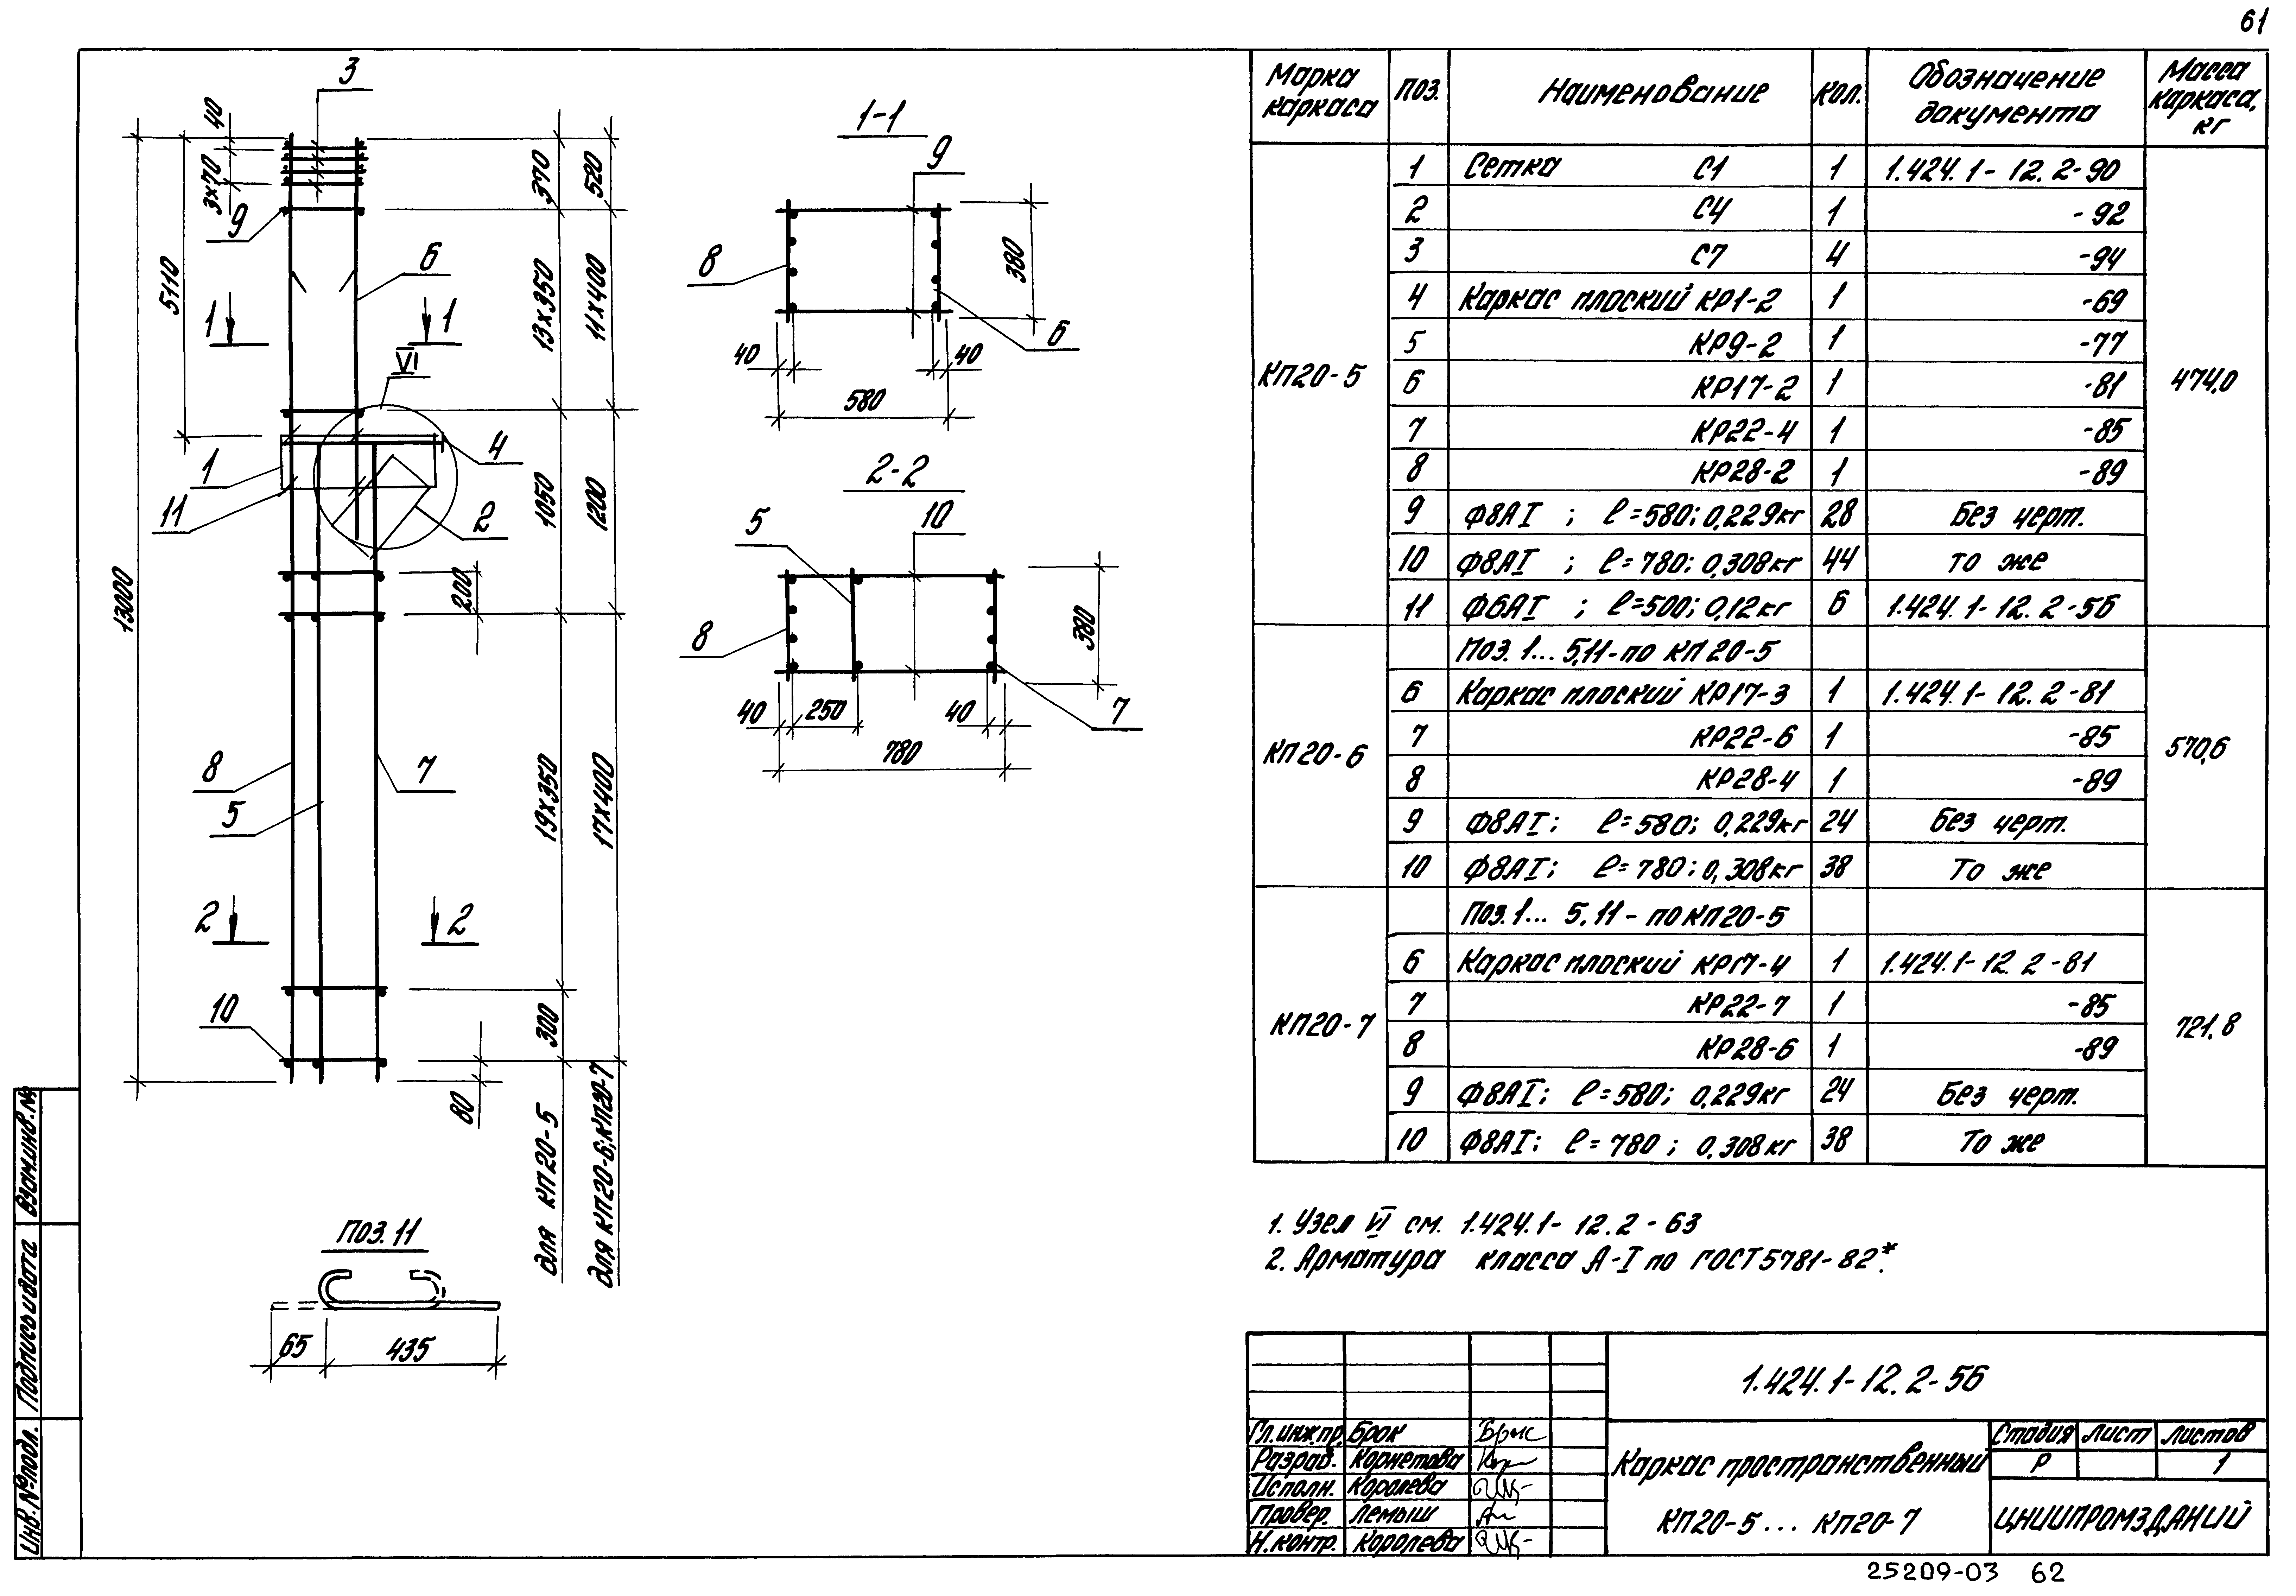 61
3
40
3×70
9
5110
6
1 1
VI
4
1
11
2
13000
200
8
7
5
2 2
10
80
370
13×350
1050
19×350
300
для КП20-5
520
11×400
1200
17×400
для КП20-6; КП20-7
1-1
9
8
6
380
40 40
580
2-2
5 10
8
7
380
40 250 40
780
Поз. 11
65 435
Марка каркаса Поз. Наименование Кол. Обозначение документа Масса каркаса, кг
КП20-5 474,0
1 Сетка С1 1 1.424.1-12.2-90
2 С4 1 -92
3 С7 4 -94
4 Каркас плоский КР1-2 1 -69
5 КР9-2 1 -77
6 КР17-2 1 -81
7 КР22-4 1 -85
8 КР28-2 1 -89
9 Ф8АI ; ℓ=580; 0,229кг 28 Без черт.
10 Ф8АI ; ℓ=780; 0,308кг 44 то же
11 Ф6АI ; ℓ=500; 0,12кг 6 1.424.1-12.2-56
КП20-6 570,6
Поз. 1... 5,11-по КП20-5
6 Каркас плоский КР17-3 1 1.424.1-12.2-81
7 КР22-6 1 -85
8 КР28-4 1 -89
9 Ф8АI; ℓ=580; 0,229кг 24 Без черт.
10 Ф8АI; ℓ=780; 0,308кг 38 То же
КП20-7 721,8
Поз. 1... 5,11-по КП20-5
6 Каркас плоский КР17-4 1 1.424.1-12.2-81
7 КР22-7 1 -85
8 КР28-6 1 -89
9 Ф8АI; ℓ=580; 0,229кг 24 Без черт.
10 Ф8АI; ℓ=780; 0,308кг 38 То же
1. Узел VI см. 1.424.1-12.2-63
2. Арматура класса А-I по ГОСТ 5781-82*.
1.424.1-12.2-56
Гл.инж.пр. Брок
Разраб. Корнетова
Исполн. Королева
Провер. Лемыш
Н.контр. Королева
Каркас пространственный
КП20-5... КП20-7
Стадия Лист Листов
Р 1
ЦНИИПРОМЗДАНИЙ
25209-03 62
Взам.инв.№
Подпись и дата
Инв.№ подл.